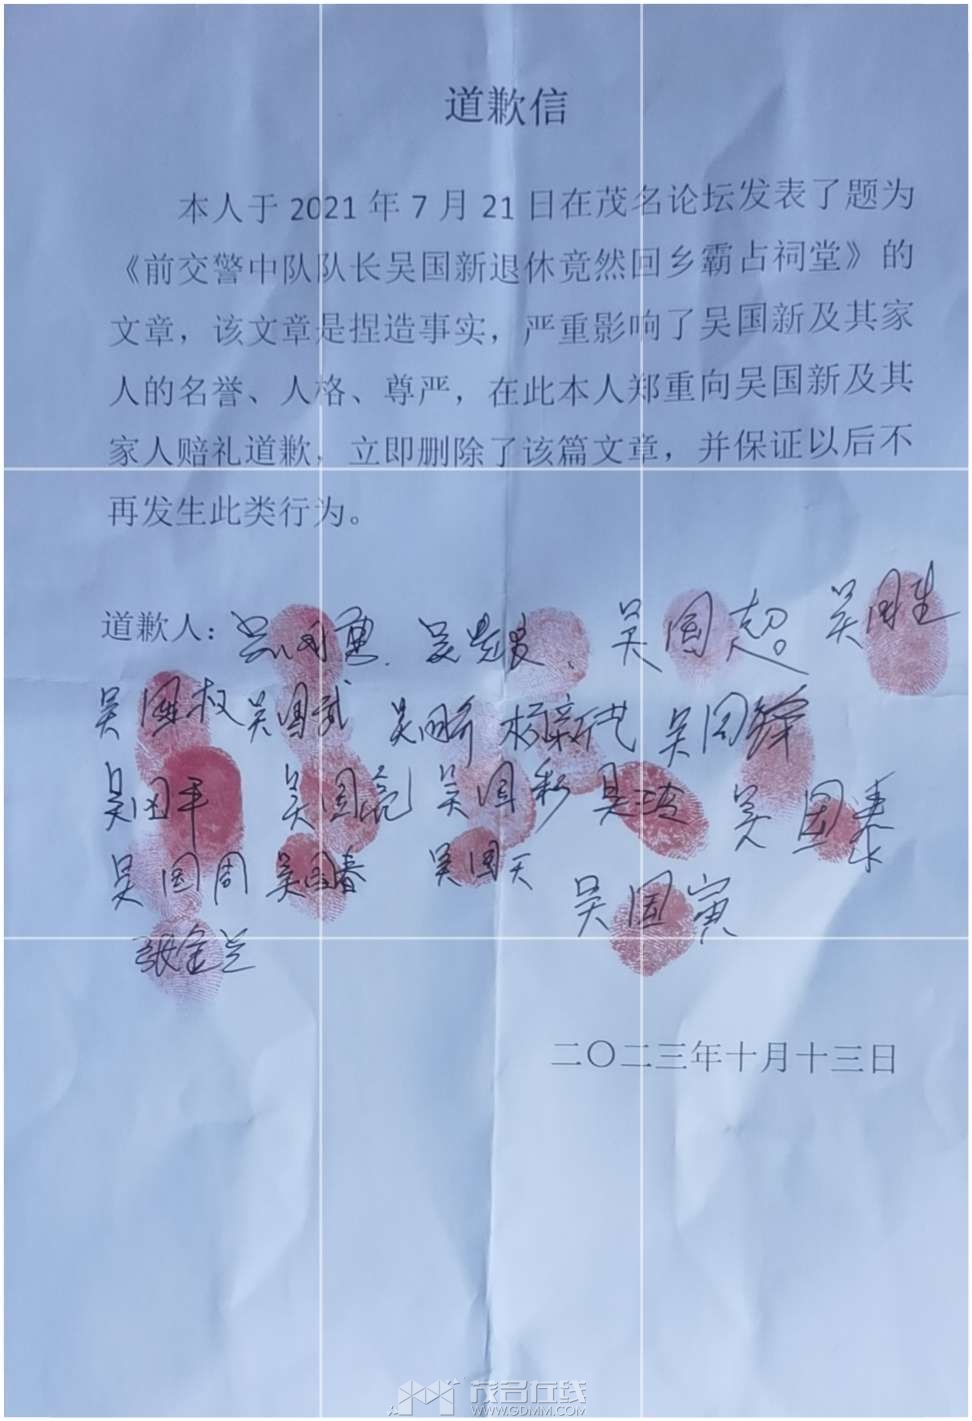 道歉信
本人于 2021 年 7 月 21 日在茂名论坛发表了题为
《前交警中队队长吴国新退休竟然回乡霸占祠堂》的
文章，该文章是捏造事实，严重影响了吴国新及其家
人的名誉、人格、尊严，在此本人郑重向吴国新及其
家人赔礼道歉，立即删除了该篇文章，并保证以后不
再发生此类行为。
道歉人： 吴国超 吴国生
吴国权 吴国武 杨新代 吴国锋
吴国平 吴国亮 吴国彩 吴波 吴国泰
吴国周 吴国春 吴国天 吴国寅
张金兰
二〇二三年十月十三日
茂名在线
WWW.GDMM.COM